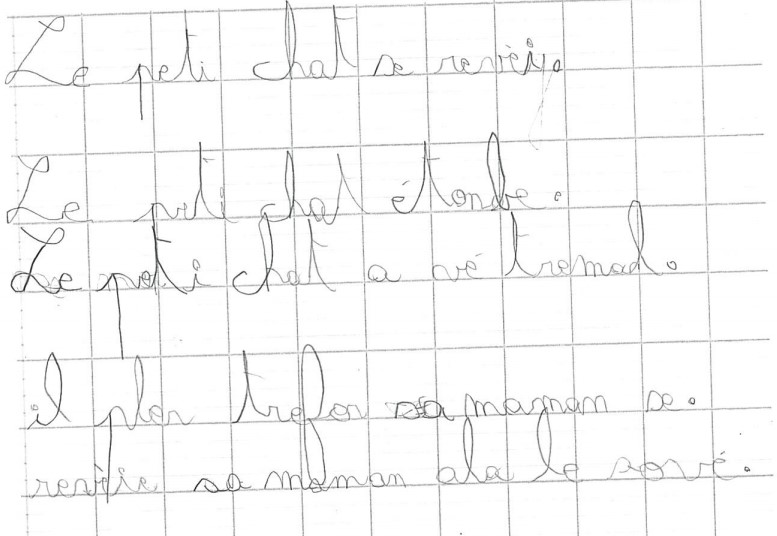 Le peti chat se revèiy.
Le peti chat étonbe.
Le peti chat a vé tremal.
il pler trefor sa maman se.
revèie sa maman ala le sové.